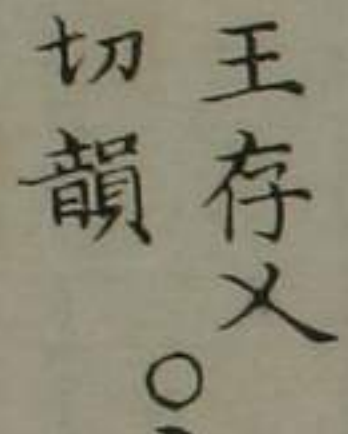 王存乂
切韻
○